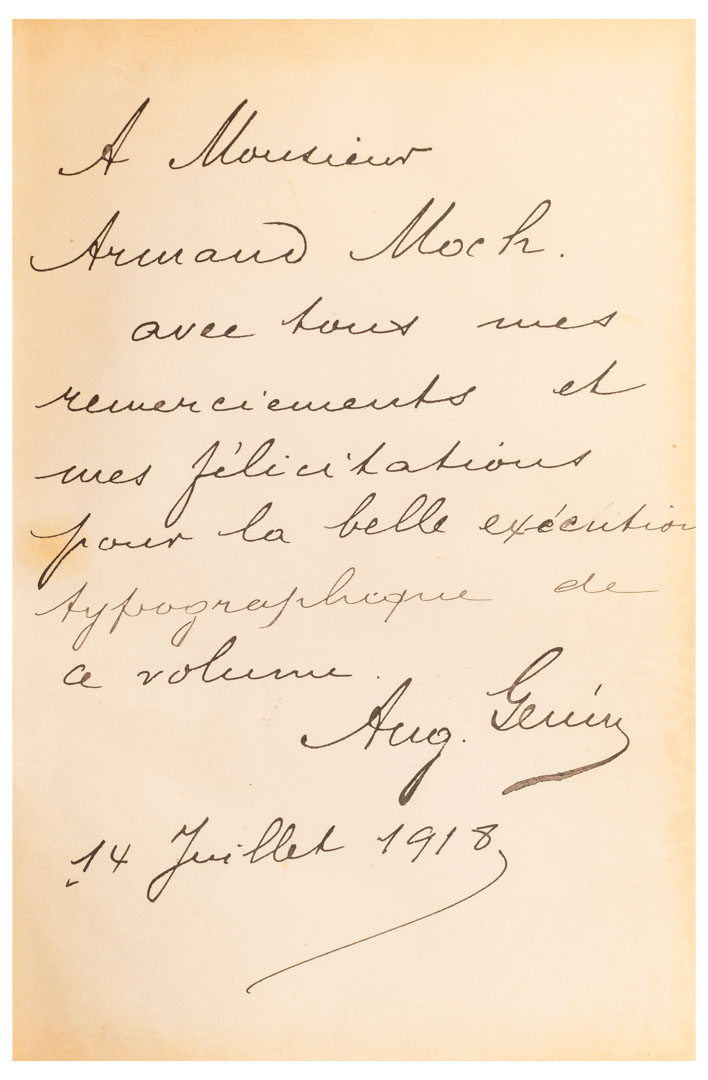 A Monsieur
Armand Moch.
avec tous mes
remerciements et
mes félicitations
pour la belle exécution
typographique de
ce volume.
Aug. Génin
14 Juillet 1918